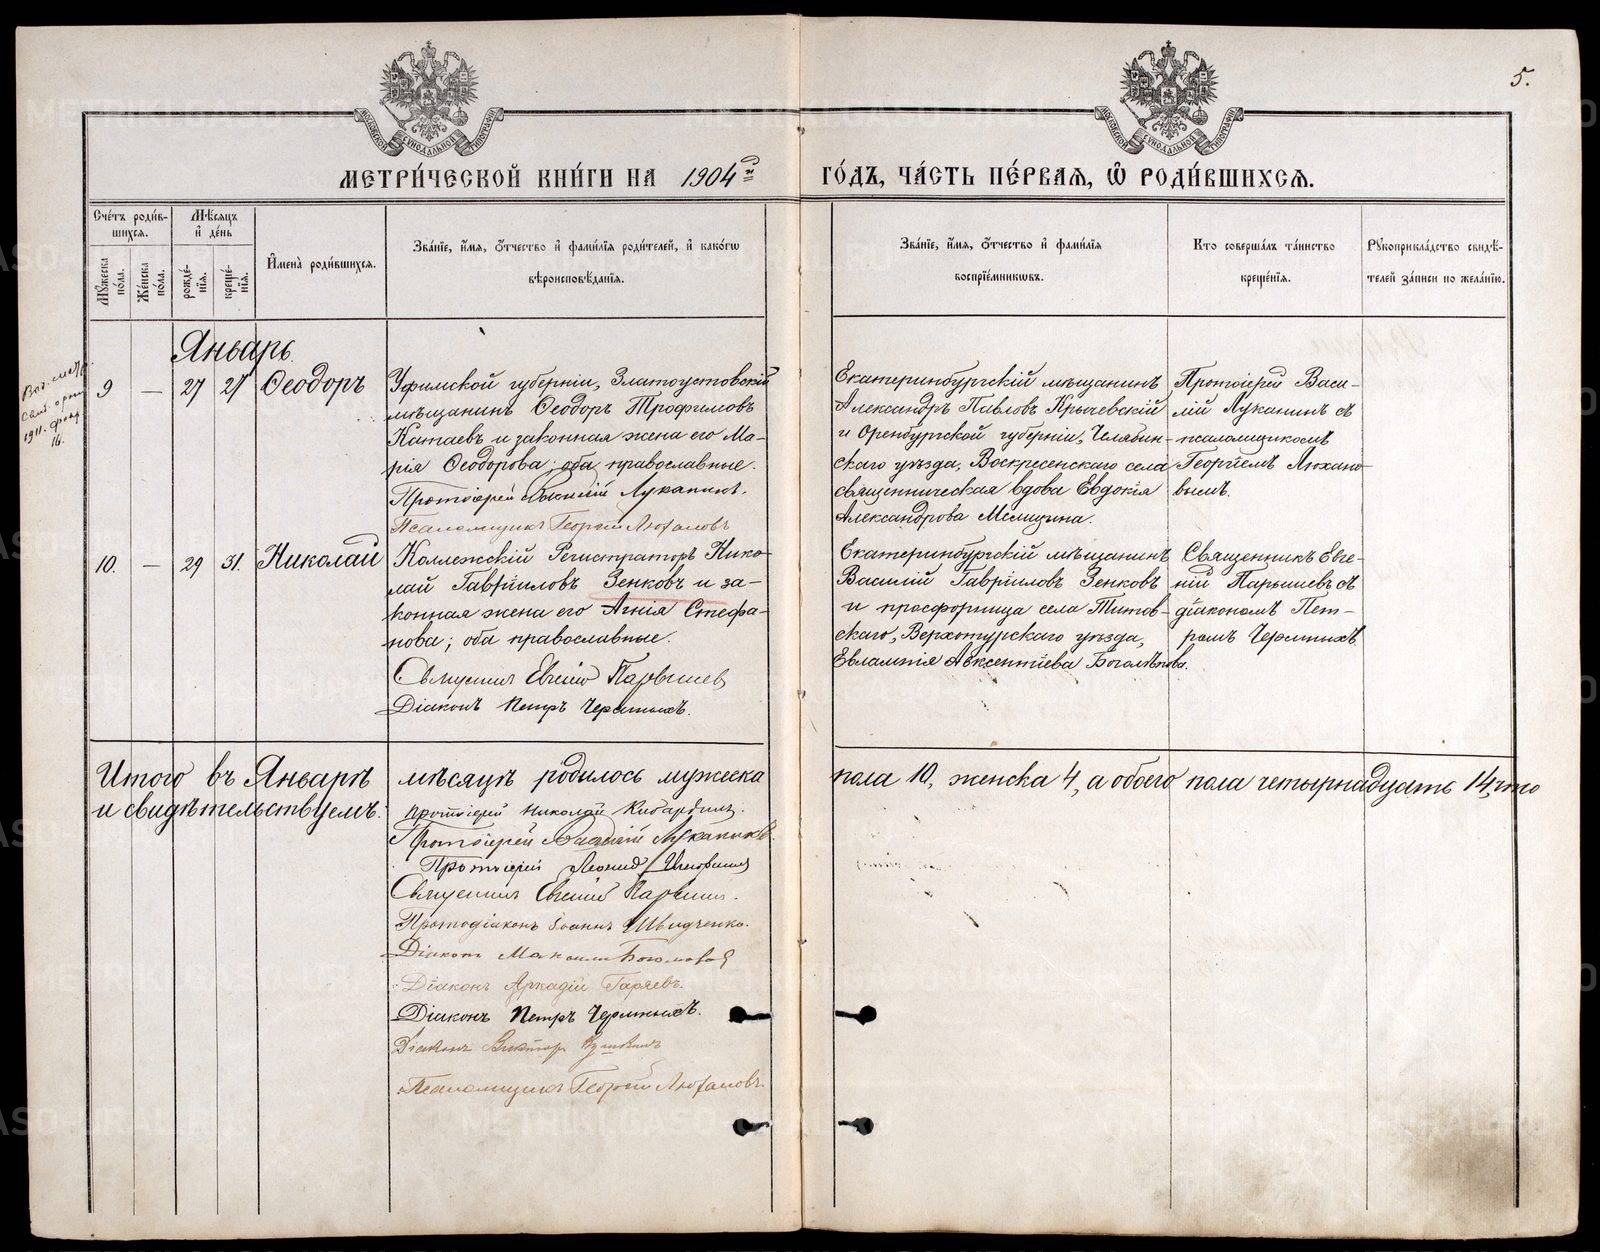 5.
МЕТРИ́ЧЕСКОЙ КНИ́ГИ НА 1904й ГО́ДЪ, ЧА́СТЬ ПЕ́РВАЯ, Ѿ РОДИ́ВШИХСЯ.
Сче́тъ роди́в-
шихся.
Му́жеска по́ла.
Же́нска по́ла.
Мѣ́сяцъ и де́нь
рожде́-нія.
креще́-нія.
Имена̀ роди́вшихся.
Зва́ніе, и́мя, о́тчество и фами́лія роди́телей, и како́гѡ
вѣроисповѣ́данія.
Зва́ніе, и́мя, о́тчество и фами́лія
воспріе́мниковъ.
Кто соверша́лъ та́инство
креще́нія.
Рукоприкла́дство свидѣ́-
телей за́писи по жела́нію.
Январь.
9 — 27 27 Ѳеодоръ
Уфимской губерніи, Златоустовскій
мѣщанинъ Ѳеодоръ Трофимовъ
Катаевъ и законная жена его Ма-
рія Ѳеодорова; оба православные.
Протоіерей Василій Луканинъ.
Псаломщикъ Георгій Люхановъ
Екатеринбургскій мѣщанинъ
Александръ Павловъ Крычевскій
и Оренбургской губерніи, Челябин-
скаго уѣзда, Воскресенскаго села
священническая вдова Евдокія
Александрова Мелицина.
Протоіерей Васи-
лій Луканинъ съ
псаломщикомъ
Георгіемъ Люхано-
вымъ.
10. — 29 31. Николай
Коллежскій Регистраторъ Нико-
лай Гавріиловъ Зенковъ и за-
конная жена его Агнія Стефа-
нова; оба православные.
Священникъ Евгеній Парышев
Діаконъ Петръ Черемныхъ.
Екатеринбургскій мѣщанинъ
Василій Гавріиловъ Зенковъ
и просфорница села Титов-
скаго, Верхотурскаго уѣзда,
Евлампія Авксентіева Боголѣпова.
Священникъ Евге-
ній Парышевъ съ
діакономъ Пет-
ромъ Черемныхъ
Итого въ Январѣ мѣсяцѣ родилось мужеска пола 10, женска 4, а обоего пола четырнадцать 14, что
и свидѣтельствуемъ:
Протоіерей Николай
Протоіерей Василій Луканинъ
Протоіерей Леонид Игноратов
Священникъ Евгеній Парышев.
Протодіаконъ Іоаннъ Швидченко.
Діаконъ Максим Богомолов
Діаконъ Аркадій Гаряевъ.
Діаконъ Петръ Черемныхъ.
Діаконъ Викторъ
Псаломщикъ Георгій Люхановъ.